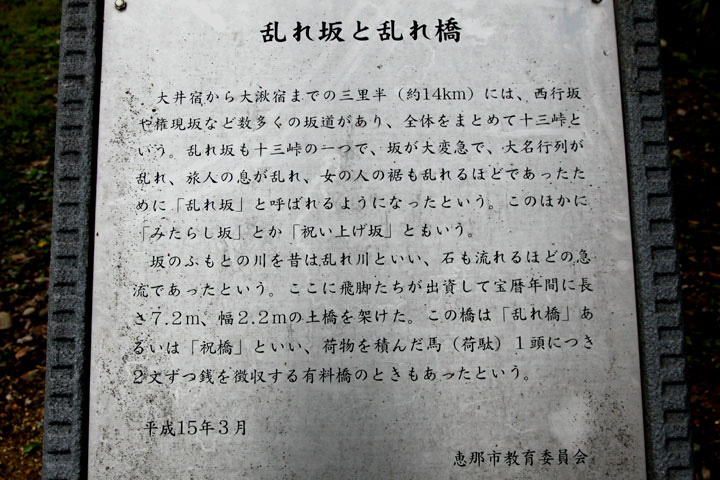 乱れ坂と乱れ橋
大井宿から大湫宿までの三里半（約14km）には、西行坂
や権現坂など数多くの坂道があり、全体をまとめて十三峠と
いう。乱れ坂も十三峠の一つで、坂が大変急で、大名行列が
乱れ、旅人の息が乱れ、女の人の裾も乱れるほどであったた
めに「乱れ坂」と呼ばれるようになったという。このほかに
「みたらし坂」とか「祝い上げ坂」ともいう。
坂のふもとの川を昔は乱れ川といい、石も流れるほどの急
流であったという。ここに飛脚たちが出資して宝暦年間に長
さ7.2m、幅2.2mの土橋を架けた。この橋は「乱れ橋」あ
るいは「祝橋」といい、荷物を積んだ馬（荷駄）1頭につき
2文ずつ銭を徴収する有料橋のときもあったという。
平成15年3月
恵那市教育委員会